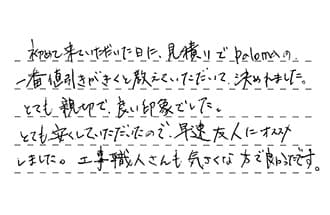 初めて来ていただいた日に、見積りでpalomaの
一番値引きがきくと教えていただいて、決めれました。
とても親切で、良い印象でした。
とても安くしていただいたので、早速友人にオススメ
しました。工事職人さんも気さくな方で良かったです。